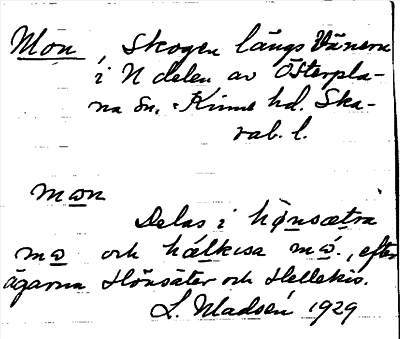 Mon, Skogen längs Vänern
i N delen av Österpla-
na sn. Kinne hd. Ska-
rab. l.
mɷn
Delas i hö̱nsæ̱tra
mɷ och hæ̱lkisa mɷ́., efter
ägarna Hönsäter och Hellekis.
L. Madsén 1929